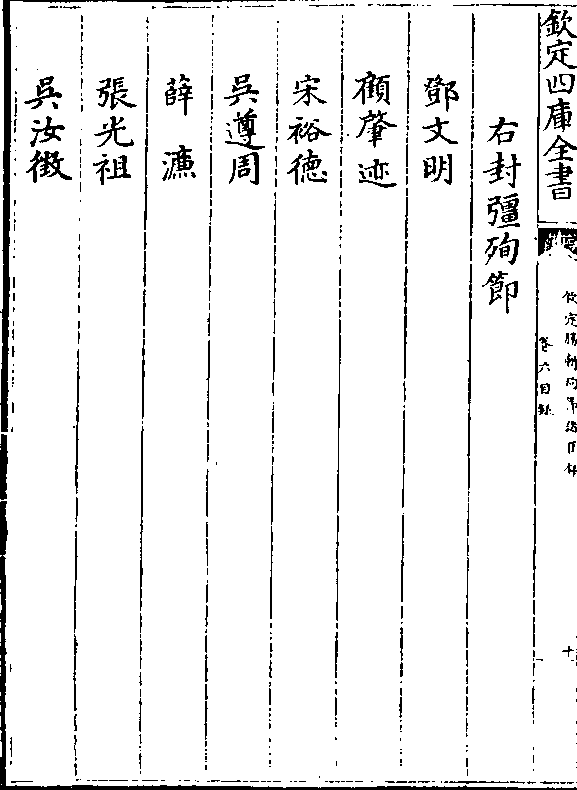 欽定四庫全書
欽定勝朝殉節諸臣錄
卷六目錄
十
右封疆殉節
鄧文明
顧肇迹
宋裕德
吳遵周
薛濂
張光祖
吳汝徵